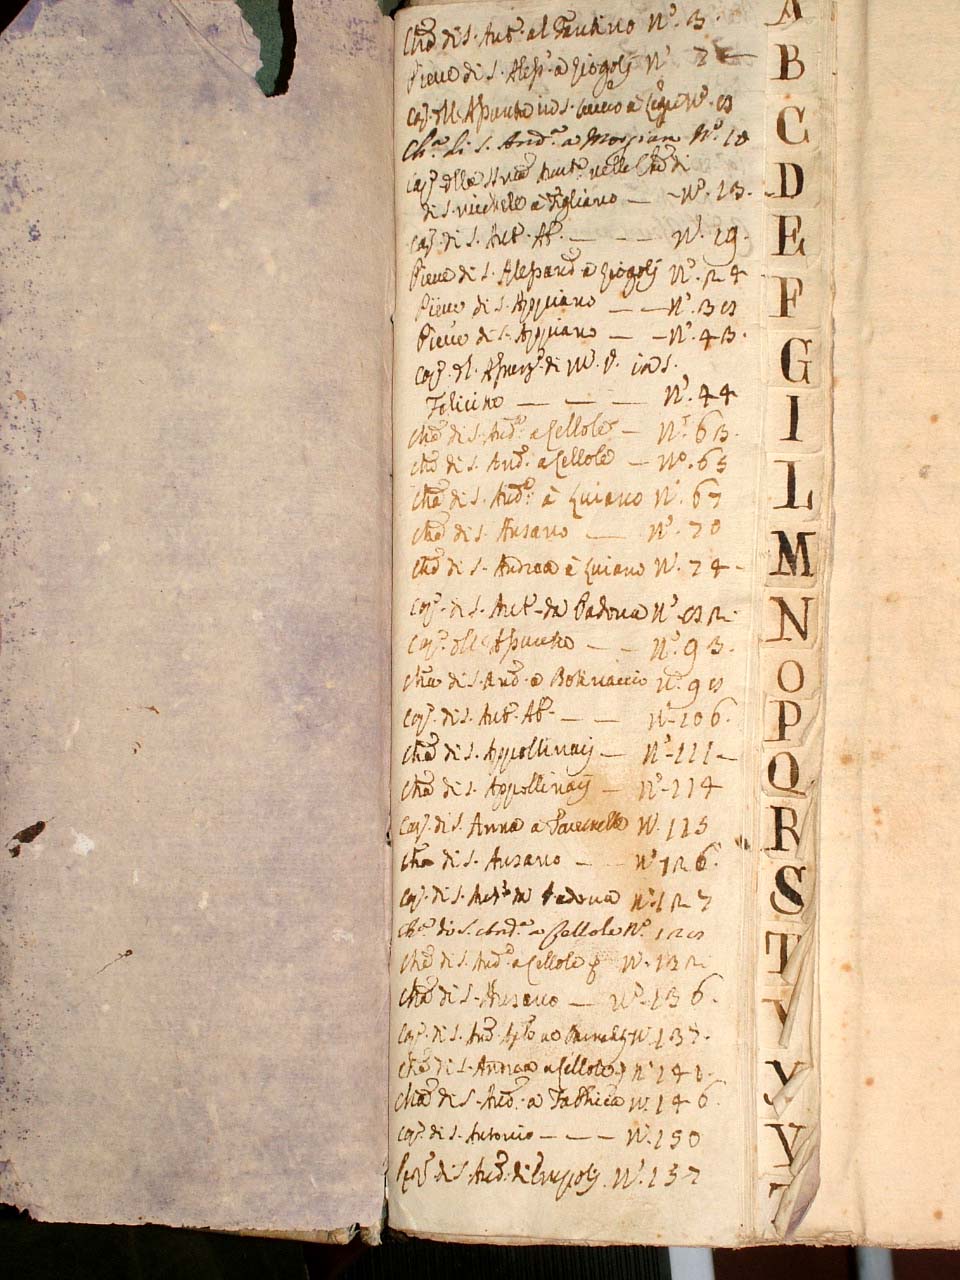 Chã di S. Ant.º al Fantino Nº. 3.
Pieve di S. Aless.º a Giogoli Nº 7
Capp. dell' Assunta in S. a Nº. 8
Ch.ª di S. And.ª a Mosciano Nº. 10
Capp. della nelle Chã di
di S. Michele a Figliano — Nº. 13.
Capp. di S. Ant. Ab. — — — Nº. 19.
Pieve di S. Alessandº a Giogoli Nº. 24
Pieve di S. Appiano — — Nº. 38
Pieve di S. Appiano — — Nº. 43.
Capp. d. di M. V. in S.
Felicino — — — Nº. 44
Chã di S. And.º a Cellole — Nº. 63.
Chã di S. And.º a Cellole — Nº. 65
Chã di S. And.º à Luiano Nº. 67
Chã di S. Ansano — Nº. 70
Chã di S. Andrea à Luiano Nº. 74 -
Capp. di S. Ant.º da Padova Nº. 82.
Capp. dell' Assunta — — Nº. 93.
Chã di S. And.º a Botinaccio Nº. 98
Capp. di S. Ant. Ab. — — Nº. 106.
Chã di S. Appollinari — Nº. 111 —
Chã di S. Appollinari — Nº. 114
Capp. di S. Anna a Nº. 115
Chã di S. Ansano — — Nº 126.
Capp. di S. Ant.º di Padova Nº. 127
Ch.ª di S. And.ª a Cellole Nº. 128
Chã di S. And.º a Cellole Nº. 132
Chã di S. Ansano — Nº. 136.
Capp. di S. And.º Nº. 137.
Chã di S. Andrea a Cellole Nº 141.
Chã di S. And.º a Fabbrica Nº. 146.
Capp. di S. Antonio — — — Nº. 150
Capp. di S. And.º di Empoli. Nº. 157
A
B
C
D
E
F
G
I
L
M
N
O
P
Q
R
S
T
V
X
Y
Z